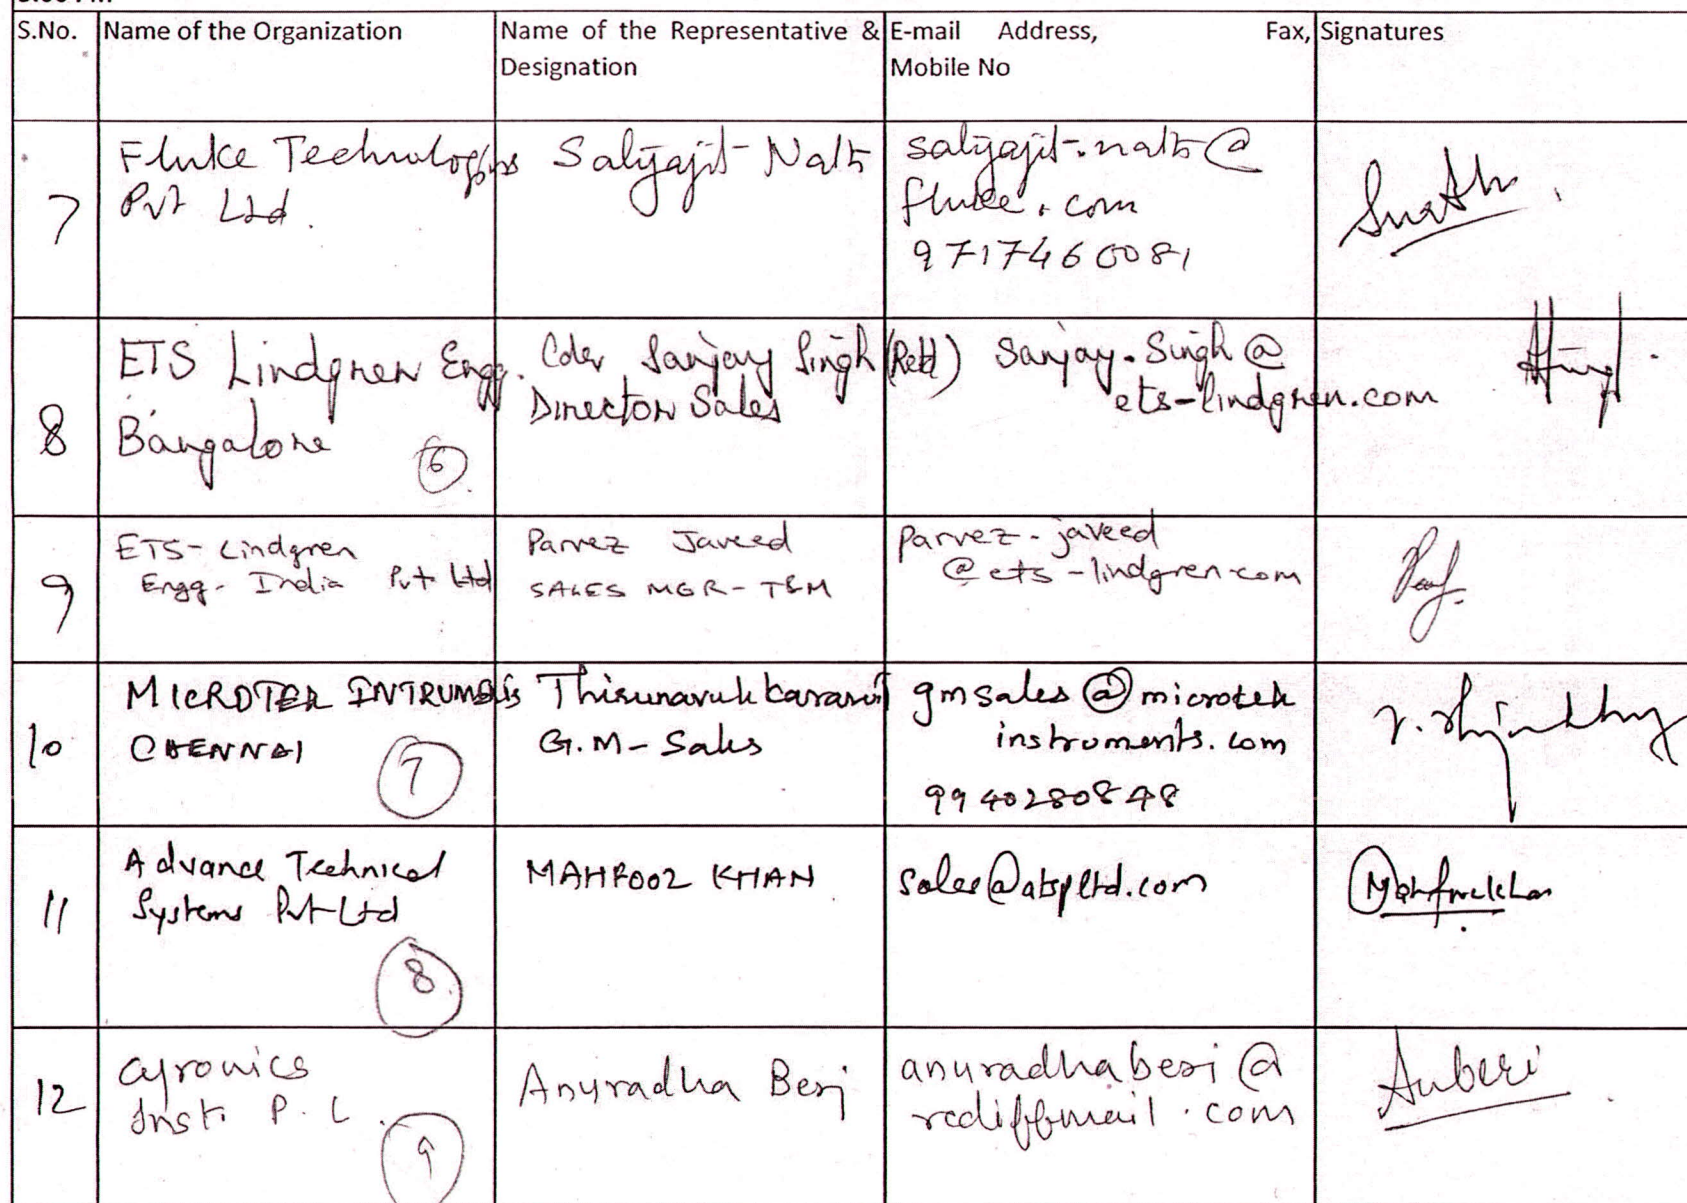 S.No. Name of the Organization Name of the Representative & E-mail Address, Fax, Signatures
Designation Mobile No
7
Fluke Technologies
Pvt Ltd.
Satyajit Nath
satyajit.nath@
fluke.com
9717460081
8
ETS Lindgren Engg.
Bangalore
6
Cdr Sanjay Singh (Retd)
Director Sales
Sanjay.Singh@
ets-lindgren.com
9
ETS-Lindgren
Engg. India Pvt Ltd
Parvez Javeed
SALES MGR-T&M
Parvez.javeed
@ets-lindgren.com
10
MICROTEK INTRUMENTS
CHENNAI
7
Thirunavukkarasu
G.M-Sales
gmsales@microtek
instruments.com
9940280848
11
Advance Technical
Systems Pvt Ltd
8
MAHFOOZ KHAN
sales@atspltd.com
12
Cyronics
Inst. P. L.
9
Anuradha Beri
anuradhaberi@
rediffmail.com
Anberi